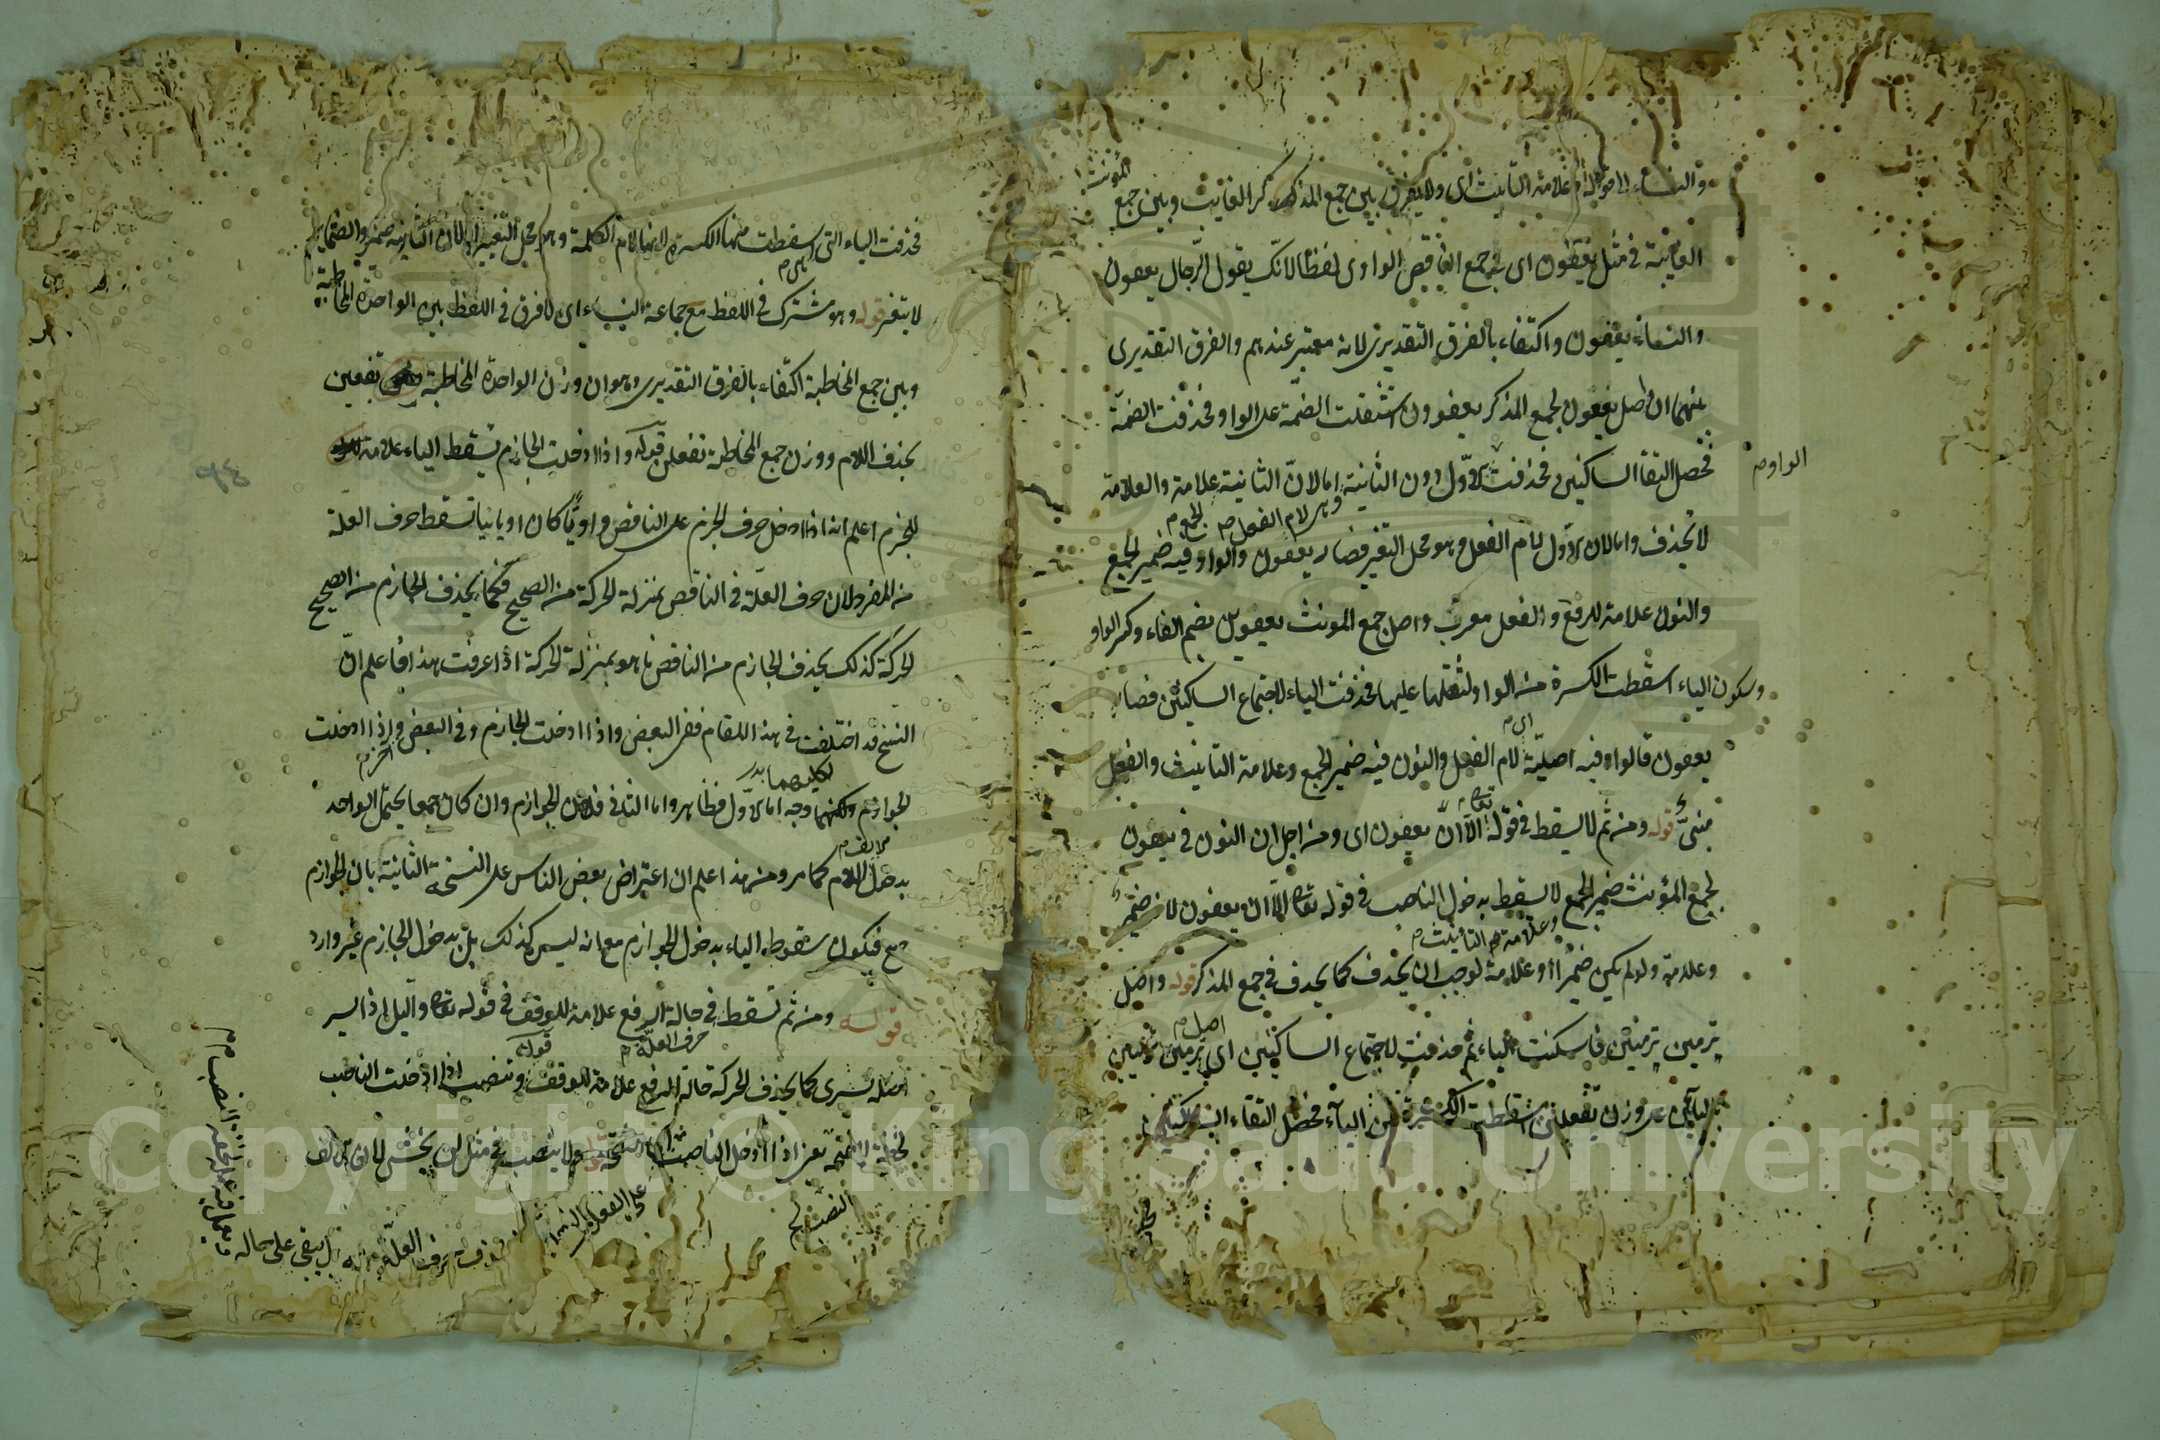 علامة التأنيث اى ولا يفرق بين جمع المذكر الغايب وبين جمع
المؤنث
الغايبة فى مثل يعفون اى فى جمع الناقص الواوى لفظا لانك يقول الرجال يعفون
والنساء يعفون واكتفاء بالفرق التقديرى لانه معتبر عندهم والفرق التقديرى
بينهما ان اصل يعفون لجمع المذكر يعفوون استثقلت الضمة على الواو فحذفت الضمة
فحصل التقاء الساكنين فحذفت الاول دون الثانية اما لان الثانية علامة والعلامة
الواو م
وهى لام الفعل م
الجمع م
لا تحذف واما لان الاول لام الفعل وهو محل التغير فصار يعفون والواو فيه ضمير الجمع
والنون علامة للرفع والفعل معرب واصل جمع المونث يعفوين بضم الفاء وكسر الواو
وسكون الياء اسقطت الكسرة من الواو لثقلها عليها فحذفت الياء لاجتماع الساكنين فصار
اى م
يعفون فالواو فيه اصلية لام الفعل والنون فيه ضمير الجمع وعلامة التانيث والفعل
مبنى قوله ومن ثم لا يسقط فى قوله تعالى الا ان يعفون اى ومن اجل ان النون فى يعفون
لجمع المؤنث ضمير الجمع لا يسقط بدخول الناصب فى قوله تعالى الا ان يعفون لانه ضمير
وعلامة التانيث م
وعلامة ولو لم يكن ضميرا او علامة لوجب ان يحذف كما يحذف فى جمع المذكر قوله واصل
اصل م
ترمين ترميين فاسكنت الياء ثم حذفت لاجتماع الساكنين اى ترمين ترميين
باليائين على وزن تفعلين اسقطت الكسرة من الياء فحصل التقاء الساكنين
فحذفت الياء التى اسقطت منها الكسرة لانها لام الكلمة وهو محل التغير لان الثانية ضمير والضماير
اى م
لا يتغير قوله وهو مشترك فى اللفظ مع جماعة النساء اى لا فرق فى اللفظ بين الواحدة المخاطبة
وبين جمع المخاطبة اكتفاء بالفرق التقديرى وهو ان وزن الواحدة المخاطبة تفعين
بحذف اللام ووزن جمع المخاطبة تفعلن قوله واذا ادخلت الجازم تسقط الياء علامة
للجزم اعلم انه اذا دخل حرف الجزم على الناقص واويا كان او يائيا تسقط حرف العلة
من المفرد لان حرف العلة فى الناقص بمنزلة الحركة من الصحيح فكما يحذف الجازم من الصحيح
الحركة كذلك يحذف الجازم من الناقص ما هو بمنزلة الحركة اذا عرفت هذا فاعلم ان
النسخ قد اختلفت فى هذا المقام ففى البعض واذا ادخلت الجازم وفى البعض واذا ادخلت
لكليهما
الجوازم ولكنهما وجه اما الاول فظاهر واما الثانى فلان الجوازم وان كان جمعا يحتمل الواحد
بدخل اللام كما مر ومن هذا اعلم ان اعتراض بعض الناس على النسخة الثانية بان الجوازم
جمع فيكون سقوط الياء بدخول الجوازم مع انه ليس كذلك بل بدخول الجازم غير وارد
قوله ومن ثم تسقط فى حالة الرفع علامة للوقف فى قوله تعالى والليل اذا يسر
حرف العلة م
قوله
اصله يسرى كما يحذف الحركة حالة الرفع علامة للوقف وتنصب اذا ادخلت الناصب
لخفة الفتحة يعنى اذا ادخل الناصب ولا ينصب فى مثل لن يخشى لان الالف
النصب
على الفعل
فحذف حرف العلة بل يبقى على حاله